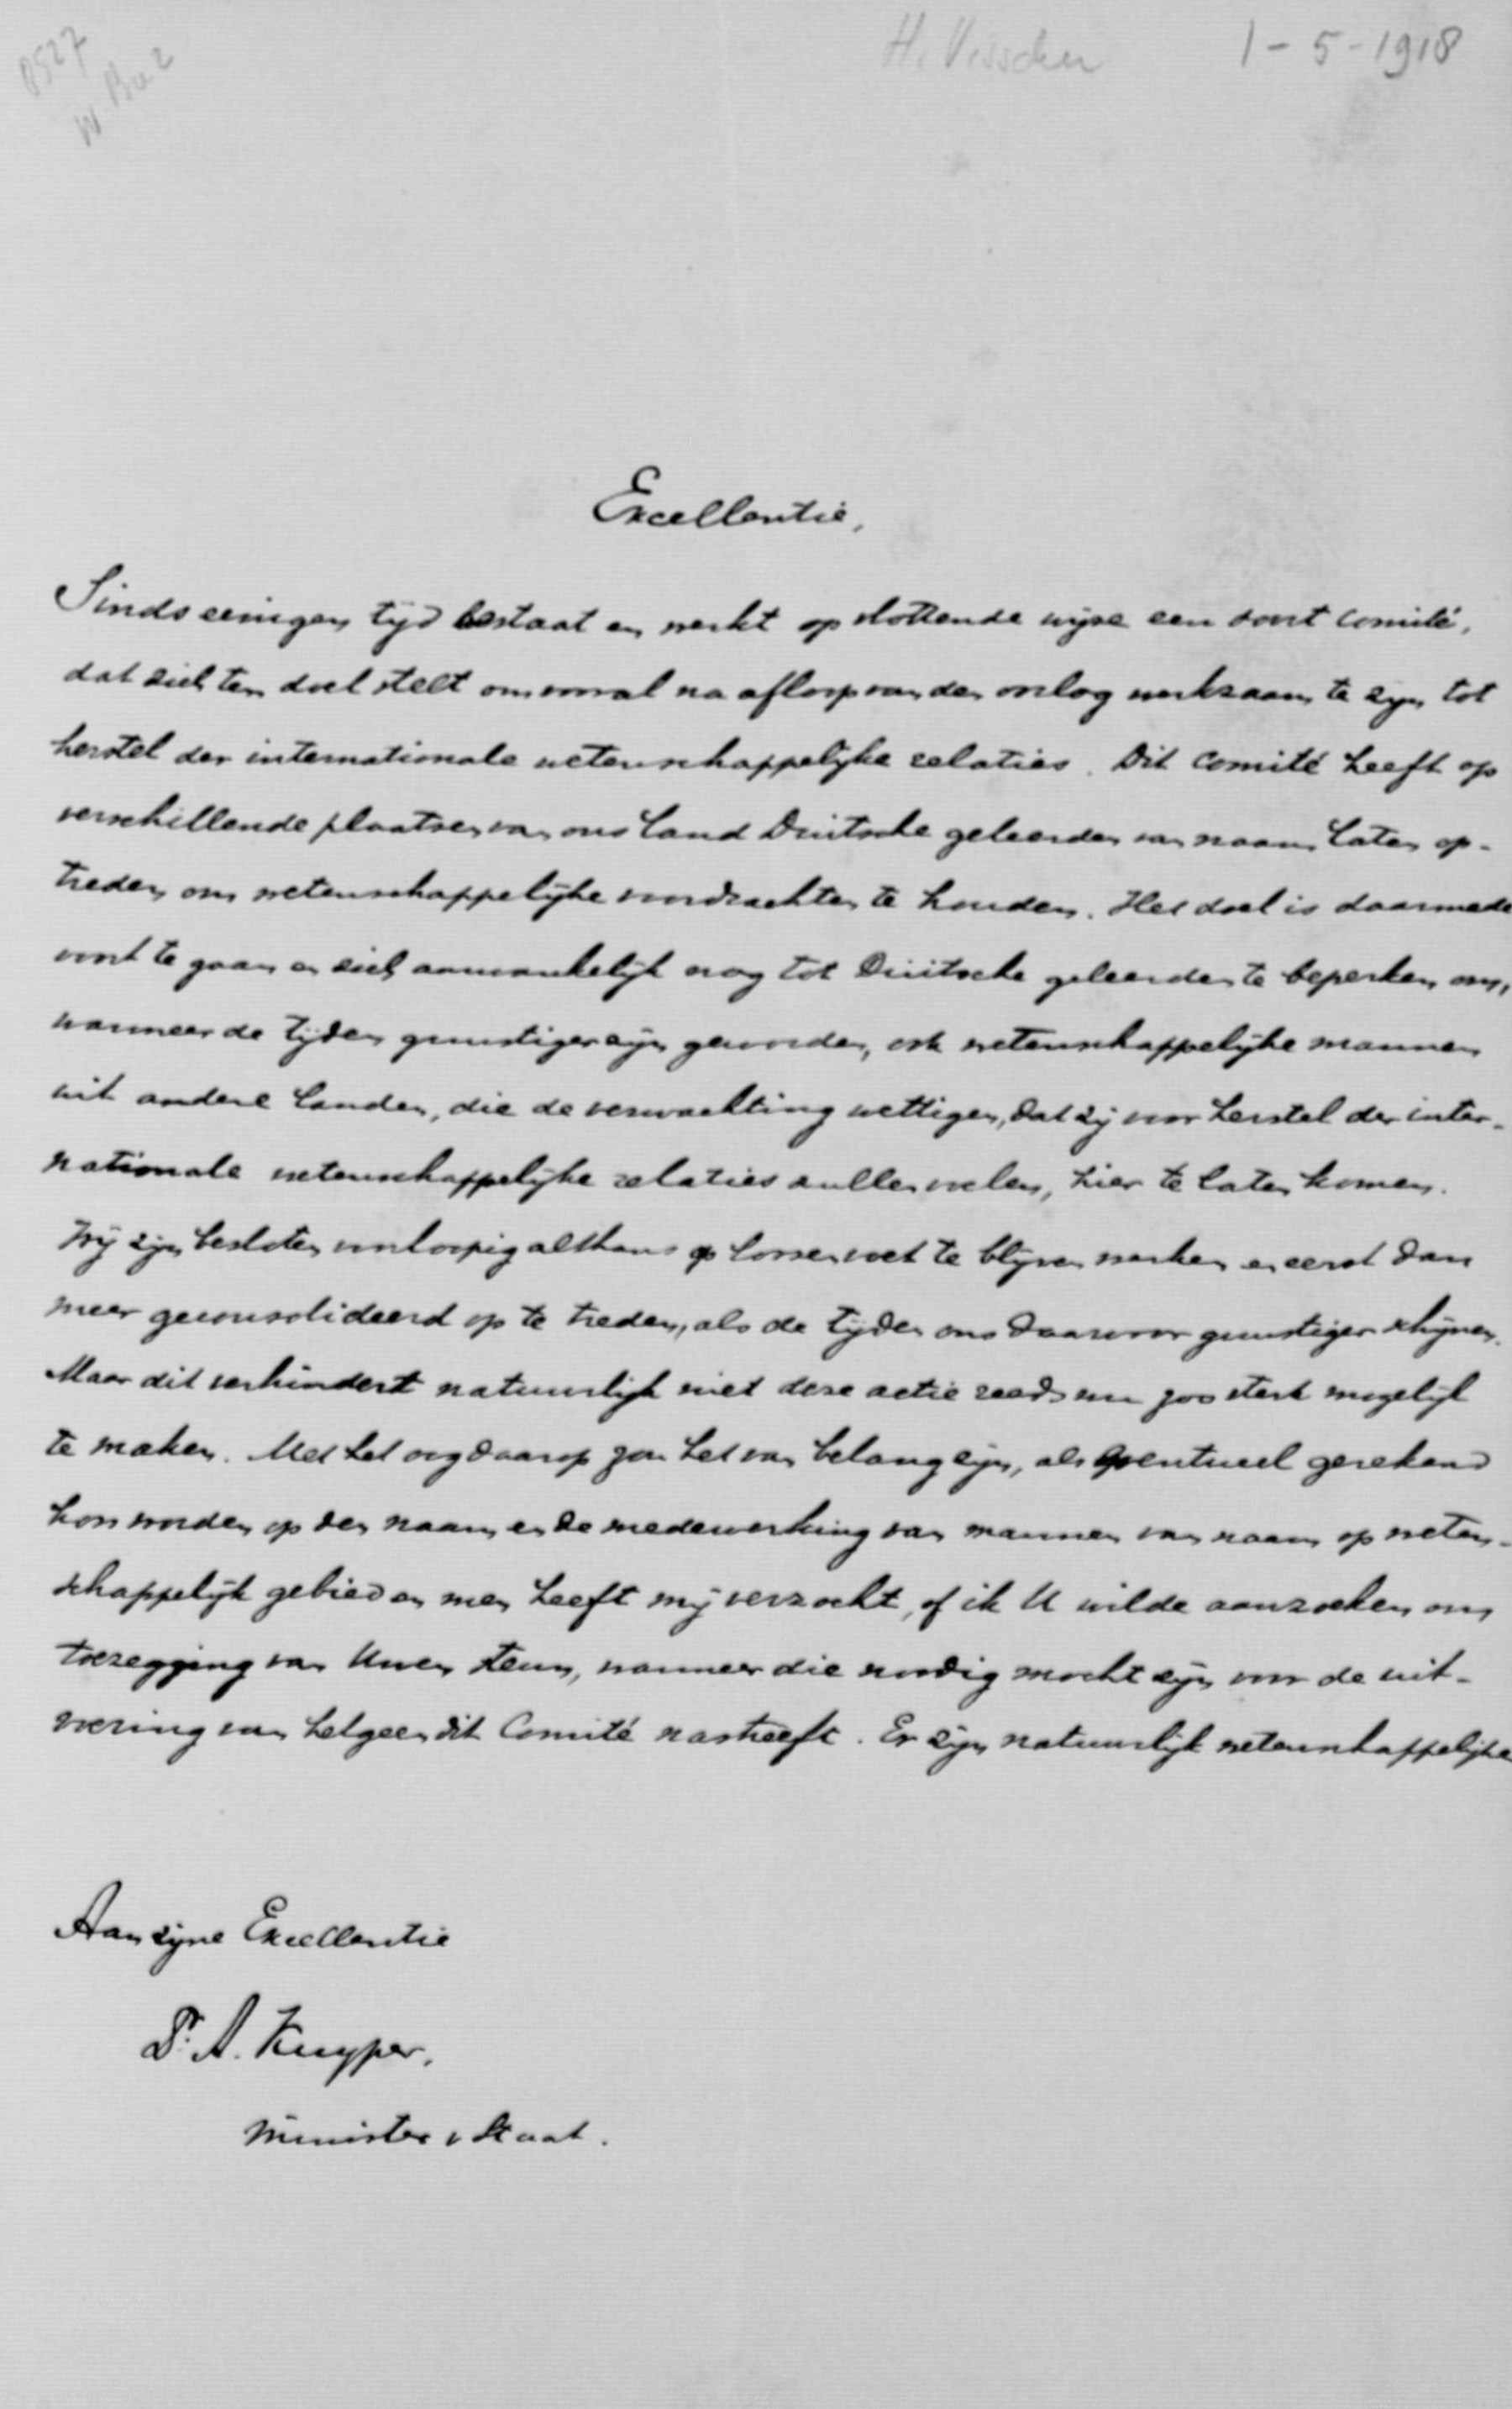 8527
H. Visscher 1-5-1918
Excellentie,
Sinds eenigen tijd bestaat en werkt op vlottende wijze een soort comité,
dat zich ten doel stelt om vooral na afloop van den oorlog werkzaam te zijn tot
herstel der internationale wetenschappelijke relaties. Dit comité heeft op
verschillende plaatsen van ons land Duitsche geleerden van naam laten op-
treden om wetenschappelijke voordrachten te houden. Het doel is daarmede
voort te gaan en zich aanvankelijk nog tot Duitsche geleerden te beperken om,
wanneer de tijden gunstiger zijn geworden, ook wetenschappelijke mannen
uit andere landen, die de verwachting wettigen, dat zij voor herstel der inter-
nationale wetenschappelijke relaties zullen voelen, hier te laten komen.
Wij zijn besloten voorloopig althans op losse voet te blijven werken en eerst dan
meer geconsolideerd op te treden, als de tijden ons daarvoor gunstiger schijnen.
Maar dit verhindert natuurlijk niet deze actie reeds nu zoo sterk mogelijk
te maken. Met het oog daarop zou het van belang zijn, als eventueel gerekend
kon worden op den naam en de medewerking van mannen van naam op weten-
schappelijk gebied en men heeft mij verzocht, of ik U wilde aanzoeken om
toezegging van Uwen steun, wanneer die noodig mocht zijn voor de uit-
voering van hetgeen dit Comité nastreeft. Er zijn natuurlijk wetenschappelijke
Aan zijne Excellentie
Dr. A. Kuyper,
Minister v Staat.